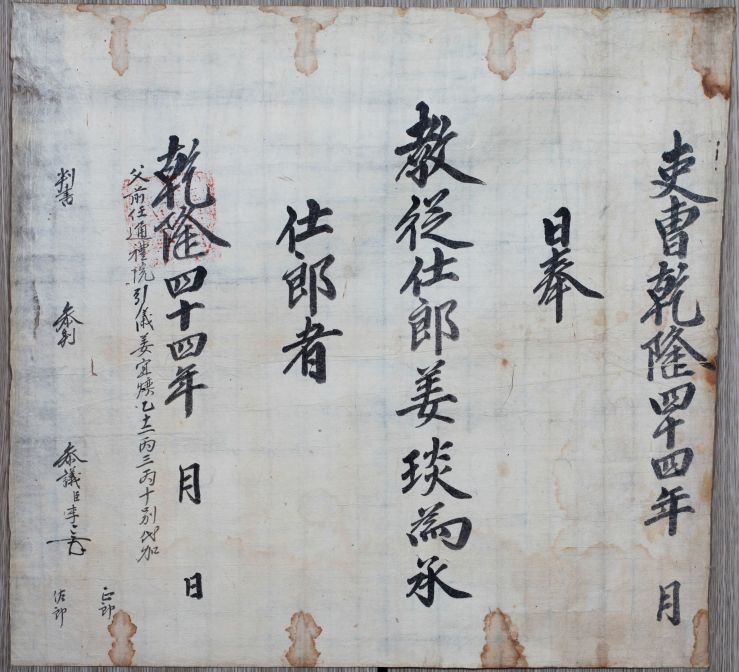 吏曹乾隆四十四年 月
日奉
教從仕郎姜琰為承
仕郎者
乾隆四十四年 月 日
父前任通禮院引儀姜宜煥乙 丙三丙十別代加
判書 參判 參議臣李
正郎
佐郎